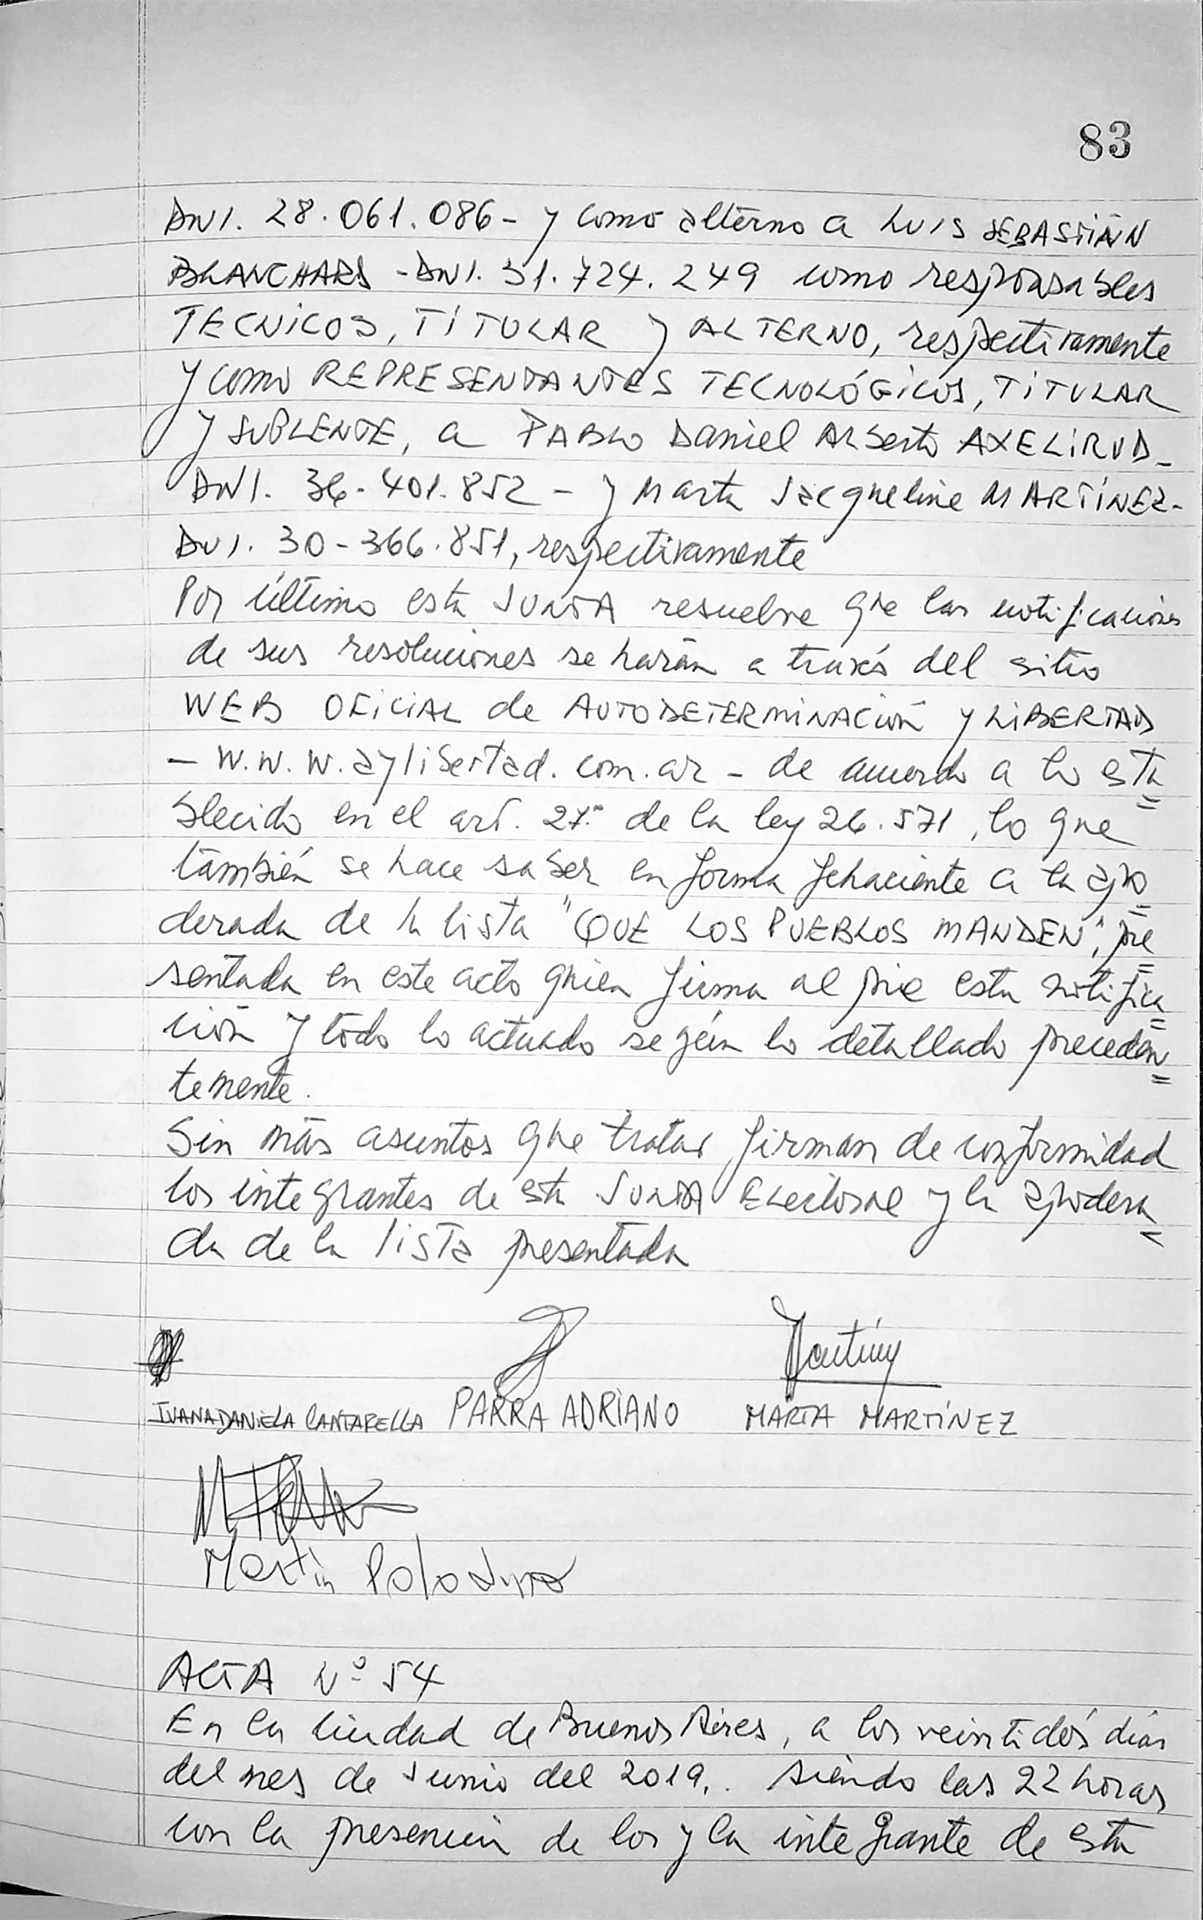 83
DNI. 28.061.086 - y como alterno a LUIS SEBASTIÁN
BLANCHARD - DNI. 31.724.249 como responsables
TECNICOS, TITULAR y ALTERNO, respectivamente
y como REPRESENTANTES TECNOLÓGICOS, TITULAR
y SUPLENTE, a PABLO Daniel Alberto AXELIRUD -
DNI. 36.401.852 - y Marta Jacqueline MARTÍNEZ -
DNI. 30-366.851, respectivamente
Por último esta JUNTA resuelve que las notificaciones
de sus resoluciones se harán a través del sitio
WEB OFICIAL de AUTODETERMINACIÓN y LIBERTAD
- W.W.W.aylibertad.com.ar - de acuerdo a lo esta
blecido en el art. 27º de la ley 26.571, lo que
también se hace saber en forma fehaciente a la apo
derada de la lista "QUE LOS PUEBLOS MANDEN", pre
sentada en este acto quien firma al pie esta notifica
ción y todo lo actuado según lo detallado preceden
temente.
Sin más asuntos que tratar firman de conformidad
los integrantes de esta JUNTA Electoral y la apodera
da de la lista presentada
Martínez
JUANA DANIELA CANTARELLA PARRA ADRIANO MARTA MARTÍNEZ
Martín
ACTA Nº 54
En la ciudad de Buenos Aires, a los veintidós días
del mes de Junio del 2019, siendo las 22 horas
con la presencia de los y la integrante de esta